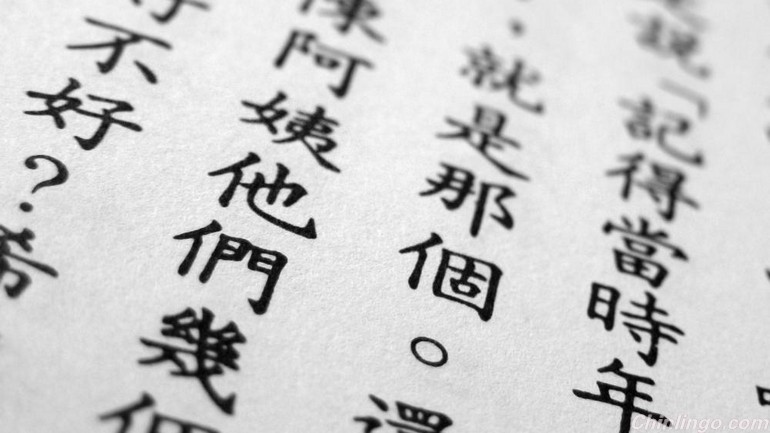 說「記得當時年
，就是那個。還
陳阿姨他們幾個
不好？希
Chinlingo.com